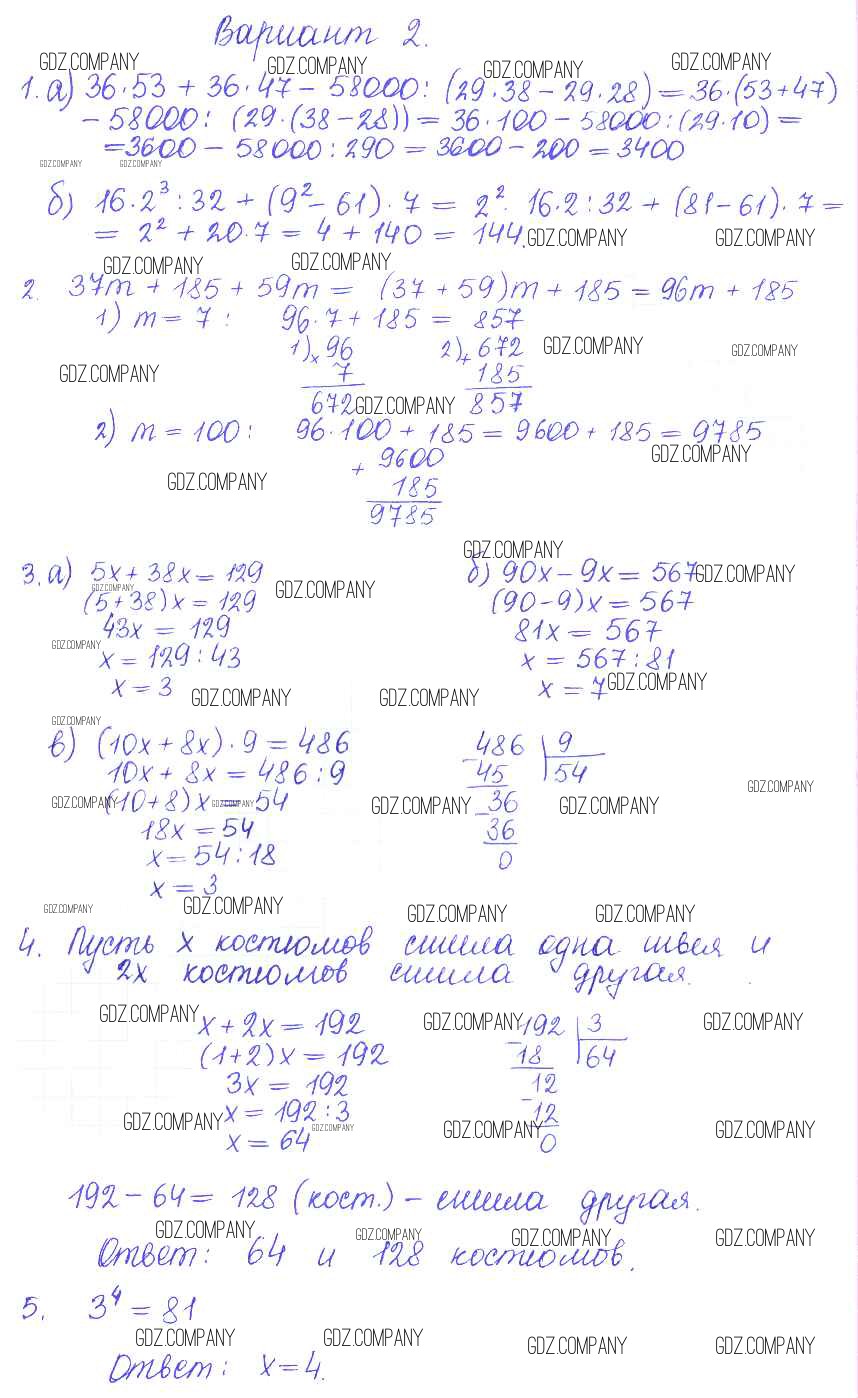 Вариант 2.
GDZ.COMPANY GDZ.COMPANY GDZ.COMPANY GDZ.COMPANY
1. а) 36·53 + 36·47 - 58000 : (29·38 - 29·28) = 36·(53+47)
- 58000 : (29·(38-28)) = 36·100 - 58000 : (29·10) =
= 3600 - 58000 : 290 = 3600 - 200 = 3400
GDZ.COMPANY GDZ.COMPANY
б) 16·2³ : 32 + (9² - 61)·7 = 2²·16·2 : 32 + (81-61)·7 =
= 2² + 20·7 = 4 + 140 = 144. GDZ.COMPANY GDZ.COMPANY
GDZ.COMPANY GDZ.COMPANY
2. 37m + 185 + 59m = (37 + 59)m + 185 = 96m + 185
1) m = 7 : 96·7 + 185 = 857
1) × 96 2) + 672 GDZ.COMPANY GDZ.COMPANY
GDZ.COMPANY 7 185
672 GDZ.COMPANY 857
2) m = 100 : 96·100 + 185 = 9600 + 185 = 9785
+ 9600 GDZ.COMPANY
GDZ.COMPANY 185
9785
GDZ.COMPANY
3. а) 5x + 38x = 129 б) 90x - 9x = 567 GDZ.COMPANY
GDZ.COMPANY GDZ.COMPANY
(5+38)x = 129 (90-9)x = 567
43x = 129 81x = 567
GDZ.COMPANY
x = 129 : 43 x = 567 : 81
x = 3 GDZ.COMPANY GDZ.COMPANY x = 7 GDZ.COMPANY
GDZ.COMPANY
в) (10x + 8x)·9 = 486 486 | 9
10x + 8x = 486 : 9 - 45 | 54
GDZ.COMPANY
GDZ.COMPANY (10+8)x = 54 GDZ.COMPANY GDZ.COMPANY - 36 GDZ.COMPANY
18x = 54 36
x = 54 : 18 0
x = 3
GDZ.COMPANY GDZ.COMPANY GDZ.COMPANY GDZ.COMPANY
4. Пусть x костюмов сшила одна швея и
2x костюмов сшила другая.
GDZ.COMPANY x + 2x = 192 GDZ.COMPANY 192 | 3 GDZ.COMPANY
(1+2)x = 192 - 18 | 64
3x = 192 12
GDZ.COMPANY x = 192 : 3 - 12
GDZ.COMPANY GDZ.COMPANY GDZ.COMPANY
x = 64 0
192 - 64 = 128 (кост.) - сшила другая.
GDZ.COMPANY GDZ.COMPANY GDZ.COMPANY GDZ.COMPANY
Ответ: 64 и 128 костюмов.
5. 3⁴ = 81
GDZ.COMPANY GDZ.COMPANY GDZ.COMPANY GDZ.COMPANY
Ответ: x = 4.